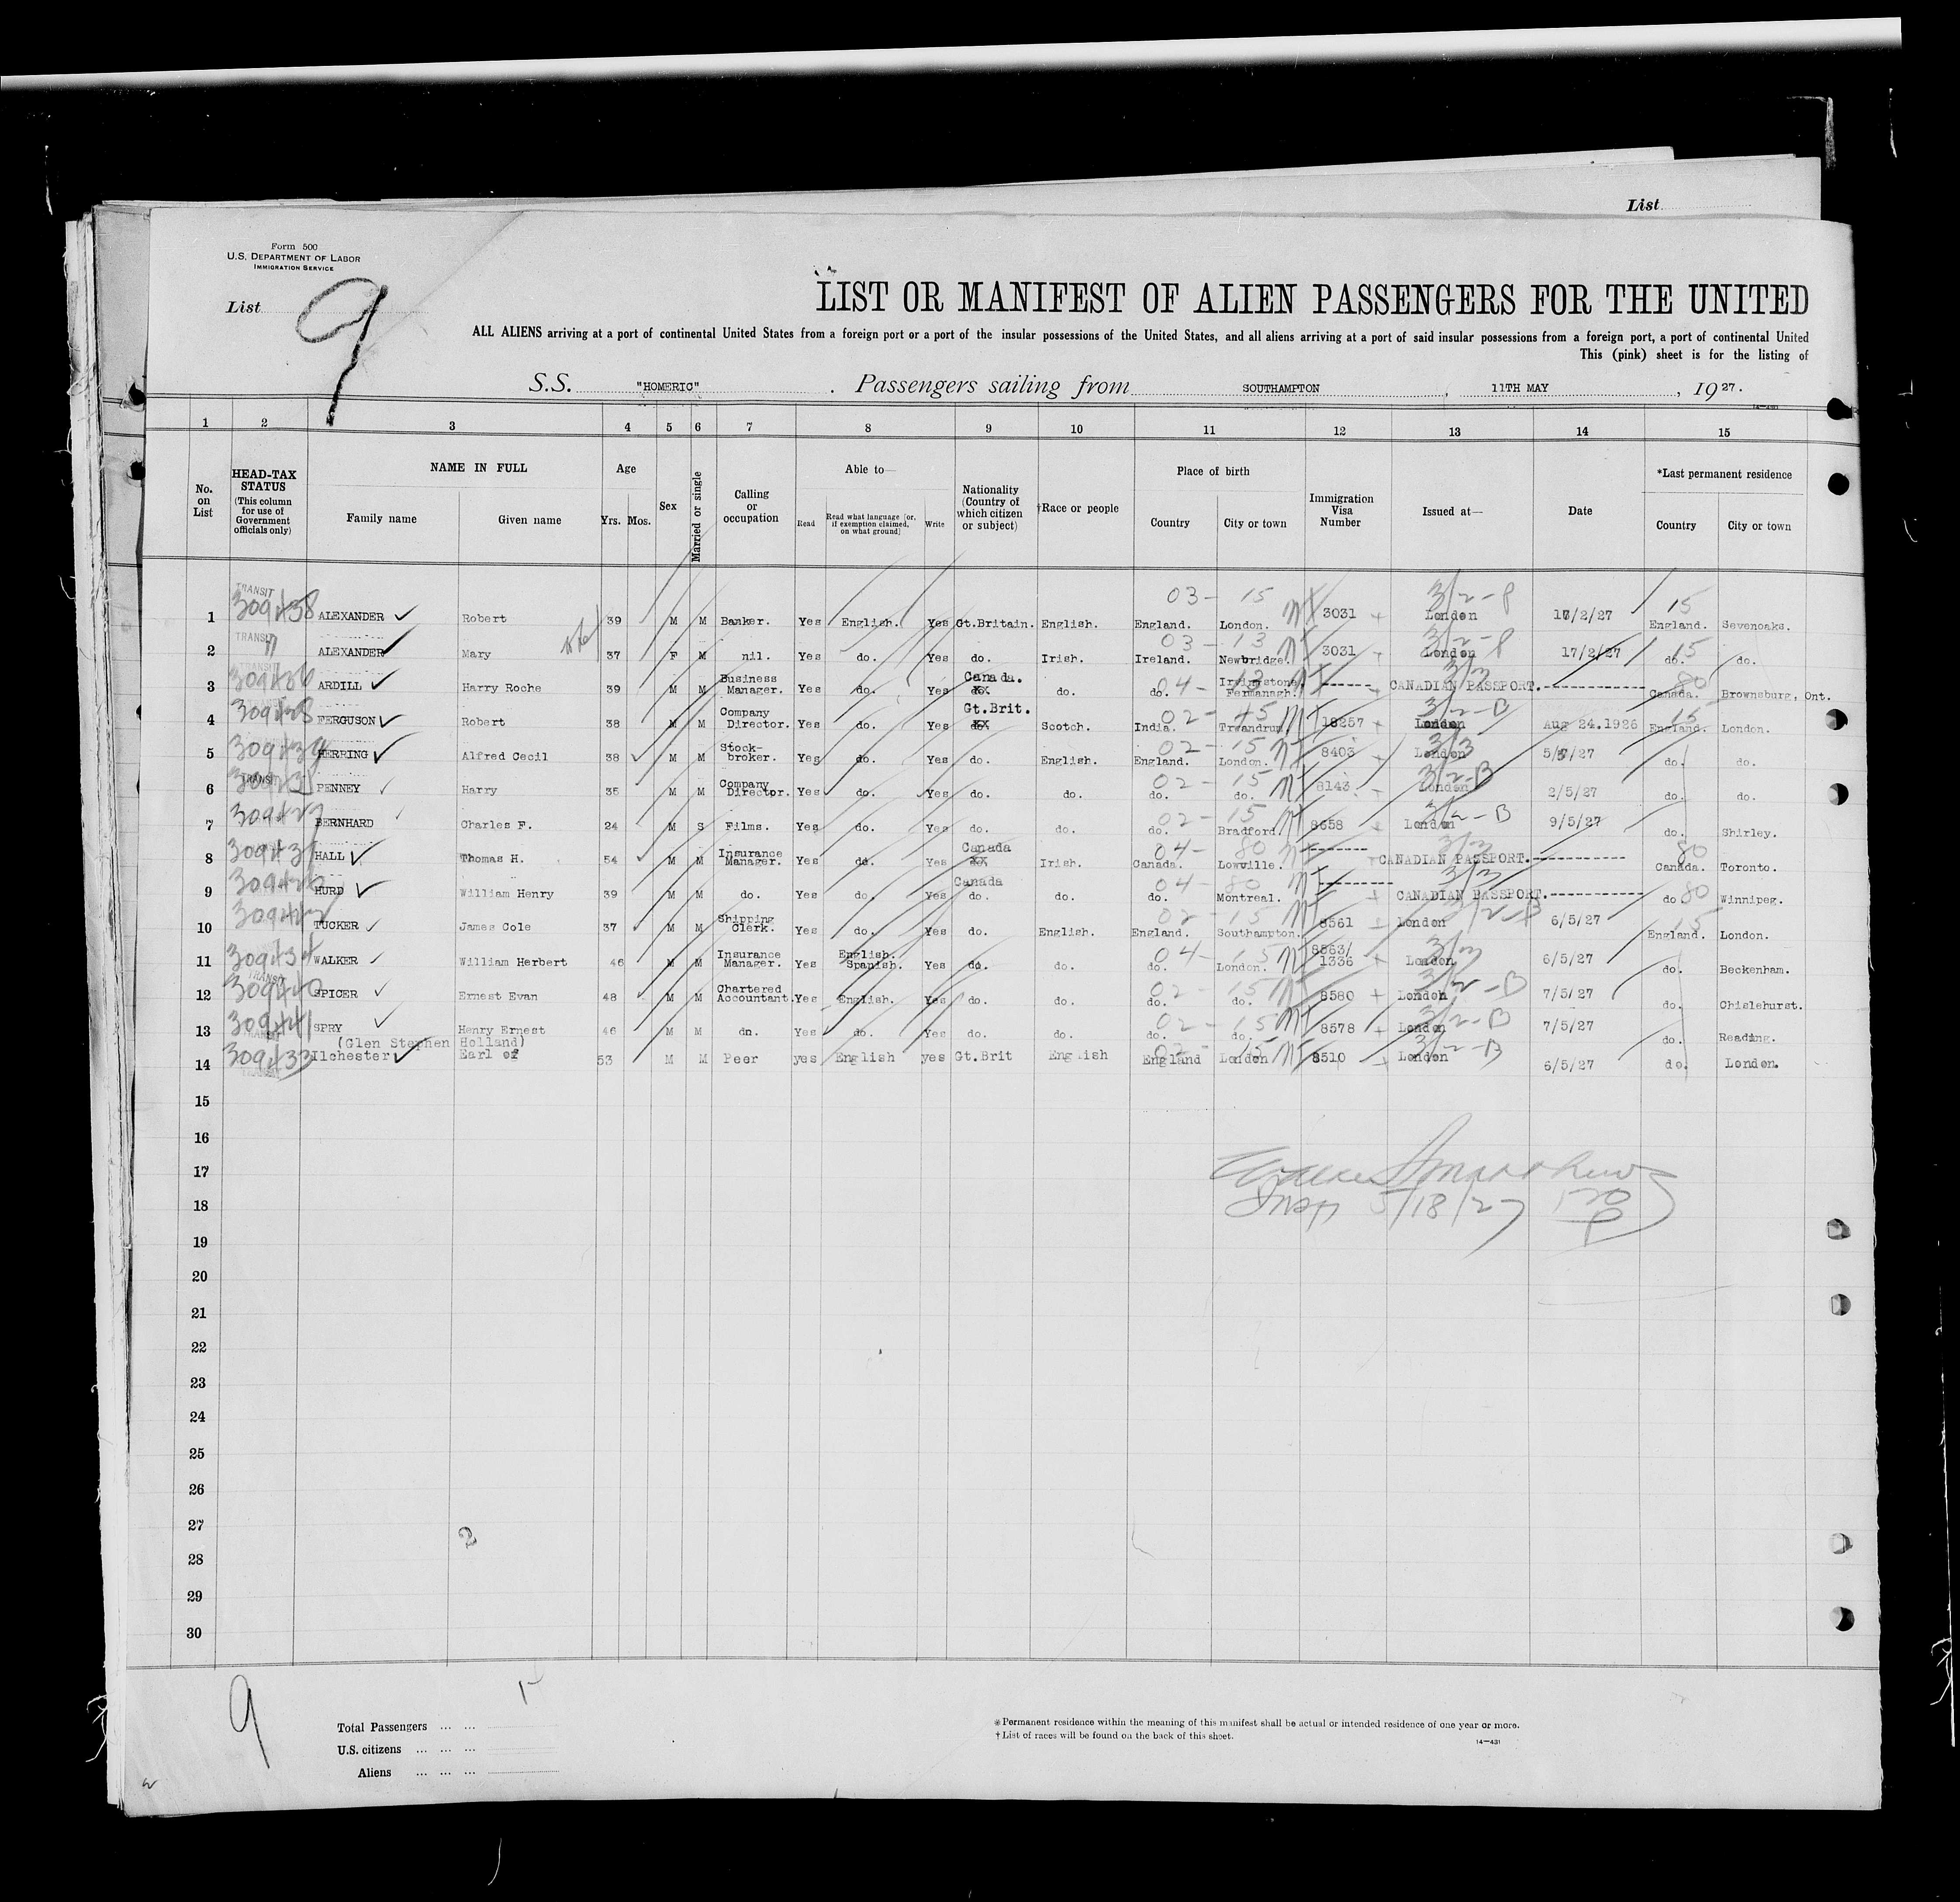 List
Form 500
U.S. DEPARTMENT OF LABOR
IMMIGRATION SERVICE
List 9
LIST OR MANIFEST OF ALIEN PASSENGERS FOR THE UNITED
ALL ALIENS arriving at a port of continental United States from a foreign port or a port of the insular possessions of the United States, and all aliens arriving at a port of said insular possessions from a foreign port, a port of continental United
This (pink) sheet is for the listing of
S.S. "HOMERIC". Passengers sailing from SOUTHAMPTON, 11TH MAY, 1927.
14—431
1 2 3 4 5 6 7 8 9 10 11 12 13 14 15
No. on List
HEAD-TAX STATUS (This column for use of Government officials only)
NAME IN FULL
Family name Given name
Age
Yrs. Mos.
Sex
Married or single
Calling or occupation
Able to—
Read Read what language [or, if exemption claimed, on what ground] Write
Nationality (Country of which citizen or subject)
†Race or people
Place of birth
Country City or town
Immigration Visa Number
Issued at—
Date
*Last permanent residence
Country City or town
TRANSIT 03- 15 3/2-P 15
1 309438 ALEXANDER Robert 39 M M Banker. Yes English. Yes Gt.Britain. English. England. London. 3031 London 17/2/27 England. Sevenoaks.
TRANSIT 03- 13 3/2-P 15
2 " ALEXANDER Mary 37 F M nil. Yes do. Yes do. Irish. Ireland. Newbridge. 3031 London 17/2/27 do. do.
TRANSIT 04- 13 3/3 80
3 309436 ARDILL Harry Roche 39 M M Business Manager. Yes do. Yes Canada. do. do. Irvinestone Fermanagh. ------ CANADIAN PASSPORT.-------------- Canada. Brownsburg, Ont.
02- 45 3/2-B 15
4 309428 FERGUSON Robert 38 M M Company Director. Yes do. Yes Gt.Brit. Scotch. India. Trvandrum. 18257 London Aug 24.1926 England. London.
02- 15 3/3
5 309439 HERRING Alfred Cecil 38 M M Stock-broker. Yes do. Yes do. English. England. London. 8403 London 5/5/27 do. do.
TRANSIT 02- 15 3/2-B
6 PENNEY Harry 35 M M Company Director. Yes do. Yes do. do. do. do. 8143 London 2/5/27 do. do.
02- 15 3/2-B
7 BERNHARD Charles F. 24 M S Films. Yes do. Yes do. do. do. Bradford. 8658 London 9/5/27 do. Shirley.
04- 80 3/3 80
8 HALL Thomas H. 54 M M Insurance Manager. Yes do. Yes Canada Irish. Canada. Lowville. ------- CANADIAN PASSPORT.-------------- Canada. Toronto.
04- 80 3/3
9 HURD William Henry 39 M M do. Yes do. Yes Canada do. do. do. Montreal. --------- CANADIAN PASSPORT.-------------- do 80 Winnipeg.
02- 15 3/2-B 15
10 TUCKER James Cole 37 M M Shipping Clerk. Yes do. Yes do. English. England. Southampton. 8561 London 6/5/27 England. London.
04- 15 3/3
11 309434 WALKER William Herbert 46 M M Insurance Manager. Yes English. Spanish. Yes do. do. do. London. 8563/1336 London 6/5/27 do. Beckenham.
TRANSIT 02- 15 3/2-B
12 309440 SPICER Ernest Evan 48 M M Chartered Accountant. Yes English. Yes do. do. do. do. 8580 London 7/5/27 do. Chislehurst.
02- 15 3/2-B
13 309441 SPRY Henry Ernest 46 M M do. Yes do. Yes do. do. do. do. 8578 London 7/5/27 do. Reading.
(Glen Stephen Holland)
02- 15 3/2-B
14 309433 Ilchester Earl of 53 M M Peer yes English yes Gt.Brit English England London 8510 London 6/5/27 do. London.
TRANSIT
15
16
17
18 Insp 5/18/27
19
20
21
22
23
24
25
26
27
28
29
30
9
Total Passengers ... ...
U.S. citizens ... ... ...
Aliens ... ... ...
*Permanent residence within the meaning of this manifest shall be actual or intended residence of one year or more.
†List of races will be found on the back of this sheet.
14—431